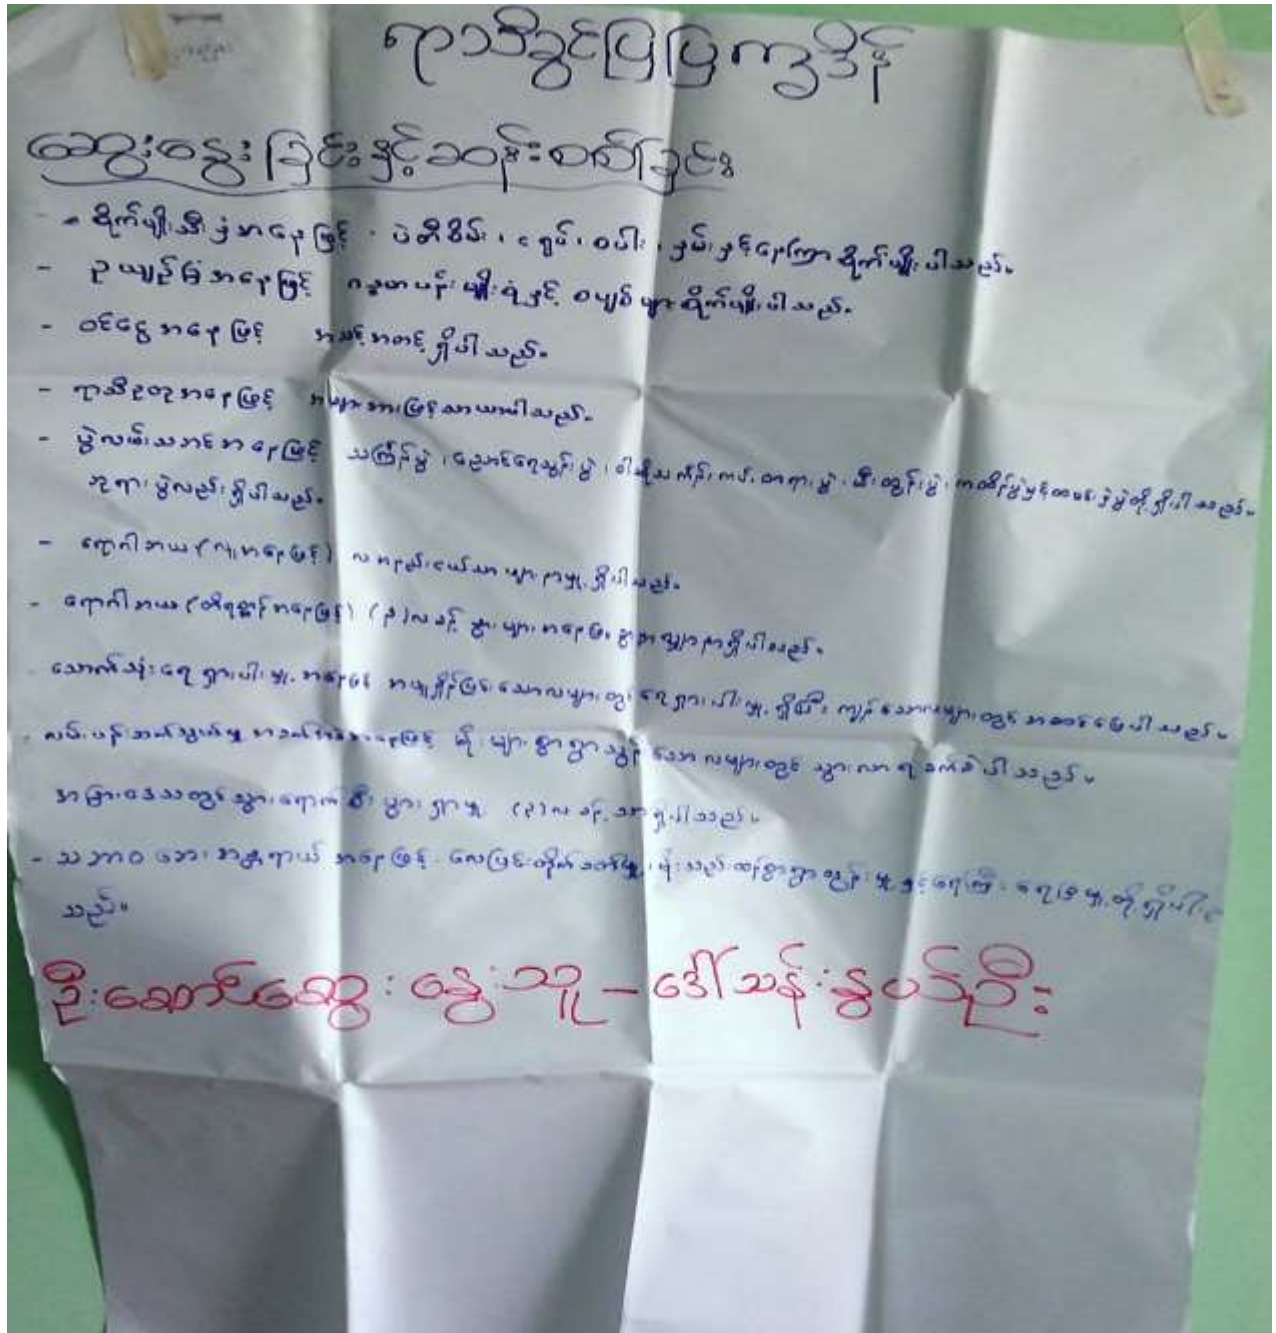 ရာသီခွင်ပြပြက္ခဒိန်
ဆွေးနွေးခြင်းနှင့်ဆန်းစစ်ခြင်း
- စိုက်ပျိုးသီးနှံအနေဖြင့် ပဲတီစိမ်း၊ ငရုပ်၊ စပါး၊ နှမ်းနှင့်နေကြာစိုက်ပျိုးပါသည်။
- ဥယျာဉ်ခြံအနေဖြင့် ဂန္ဓမာပန်းမျိုးစုံနှင့် စပျစ်များစိုက်ပျိုးပါသည်။
- ဝင်ငွေအနေဖြင့် အသင့်အတင့်ရှိပါသည်။
- ရာသီဥတုအနေဖြင့် အများအားဖြင့်သာယာပါသည်။
- ပွဲလမ်းသဘင်အနေဖြင့် သင်္ကြန်ပွဲ၊ ညောင်ရေသွန်းပွဲ၊ ဝါဆိုသင်္ကန်းကပ်တရားပွဲ၊ မီးထွန်းပွဲ၊ ကထိန်ပွဲနှင့်ထမနဲပွဲတို့ရှိပါသည်။
ဘုရားပွဲလည်းရှိပါသည်။
- ရောဂါဘယ (လူအနေဖြင့်) လအနည်းငယ်သာများနာမှုရှိပါသည်။
- ရောဂါဘယ (တိရစ္ဆာန်အနေဖြင့်) (၃)လခန့် နွားများအနေဖြင့် ရှိပါသည်။
သောက်သုံးရေရှားပါးမှုအနေဖြင့် အပူရှိန်ပြင်းသောလများတွင် ရေရှားပါးမှုရှိပြီး ကျန်သောလများတွင် အဆင်ပြေပါသည်။
လမ်းပန်းဆက်သွယ်မှုအခက်အခဲအနေဖြင့် မိုးများစွာရွာသွန်းသောလများတွင် သွားလာရခက်ခဲပါသည်။
အခြားဒေသတွင်သွားရောက်စီးပွားရှာမှု (၃)လခန့်သာရှိပါသည်။
- သဘာဝဘေးအန္တရာယ်အနေဖြင့် လေပြင်းတိုက်ခတ်မှု၊ မိုးသည်းထန်စွာရွာသွန်းမှုနှင့်ရေကြီးရေလျှံမှုတို့ရှိပါ
သည်။
ဦးဆောင်ဆွေးနွေးသူ - ဒေါ်သန်းနွယ်ဦး